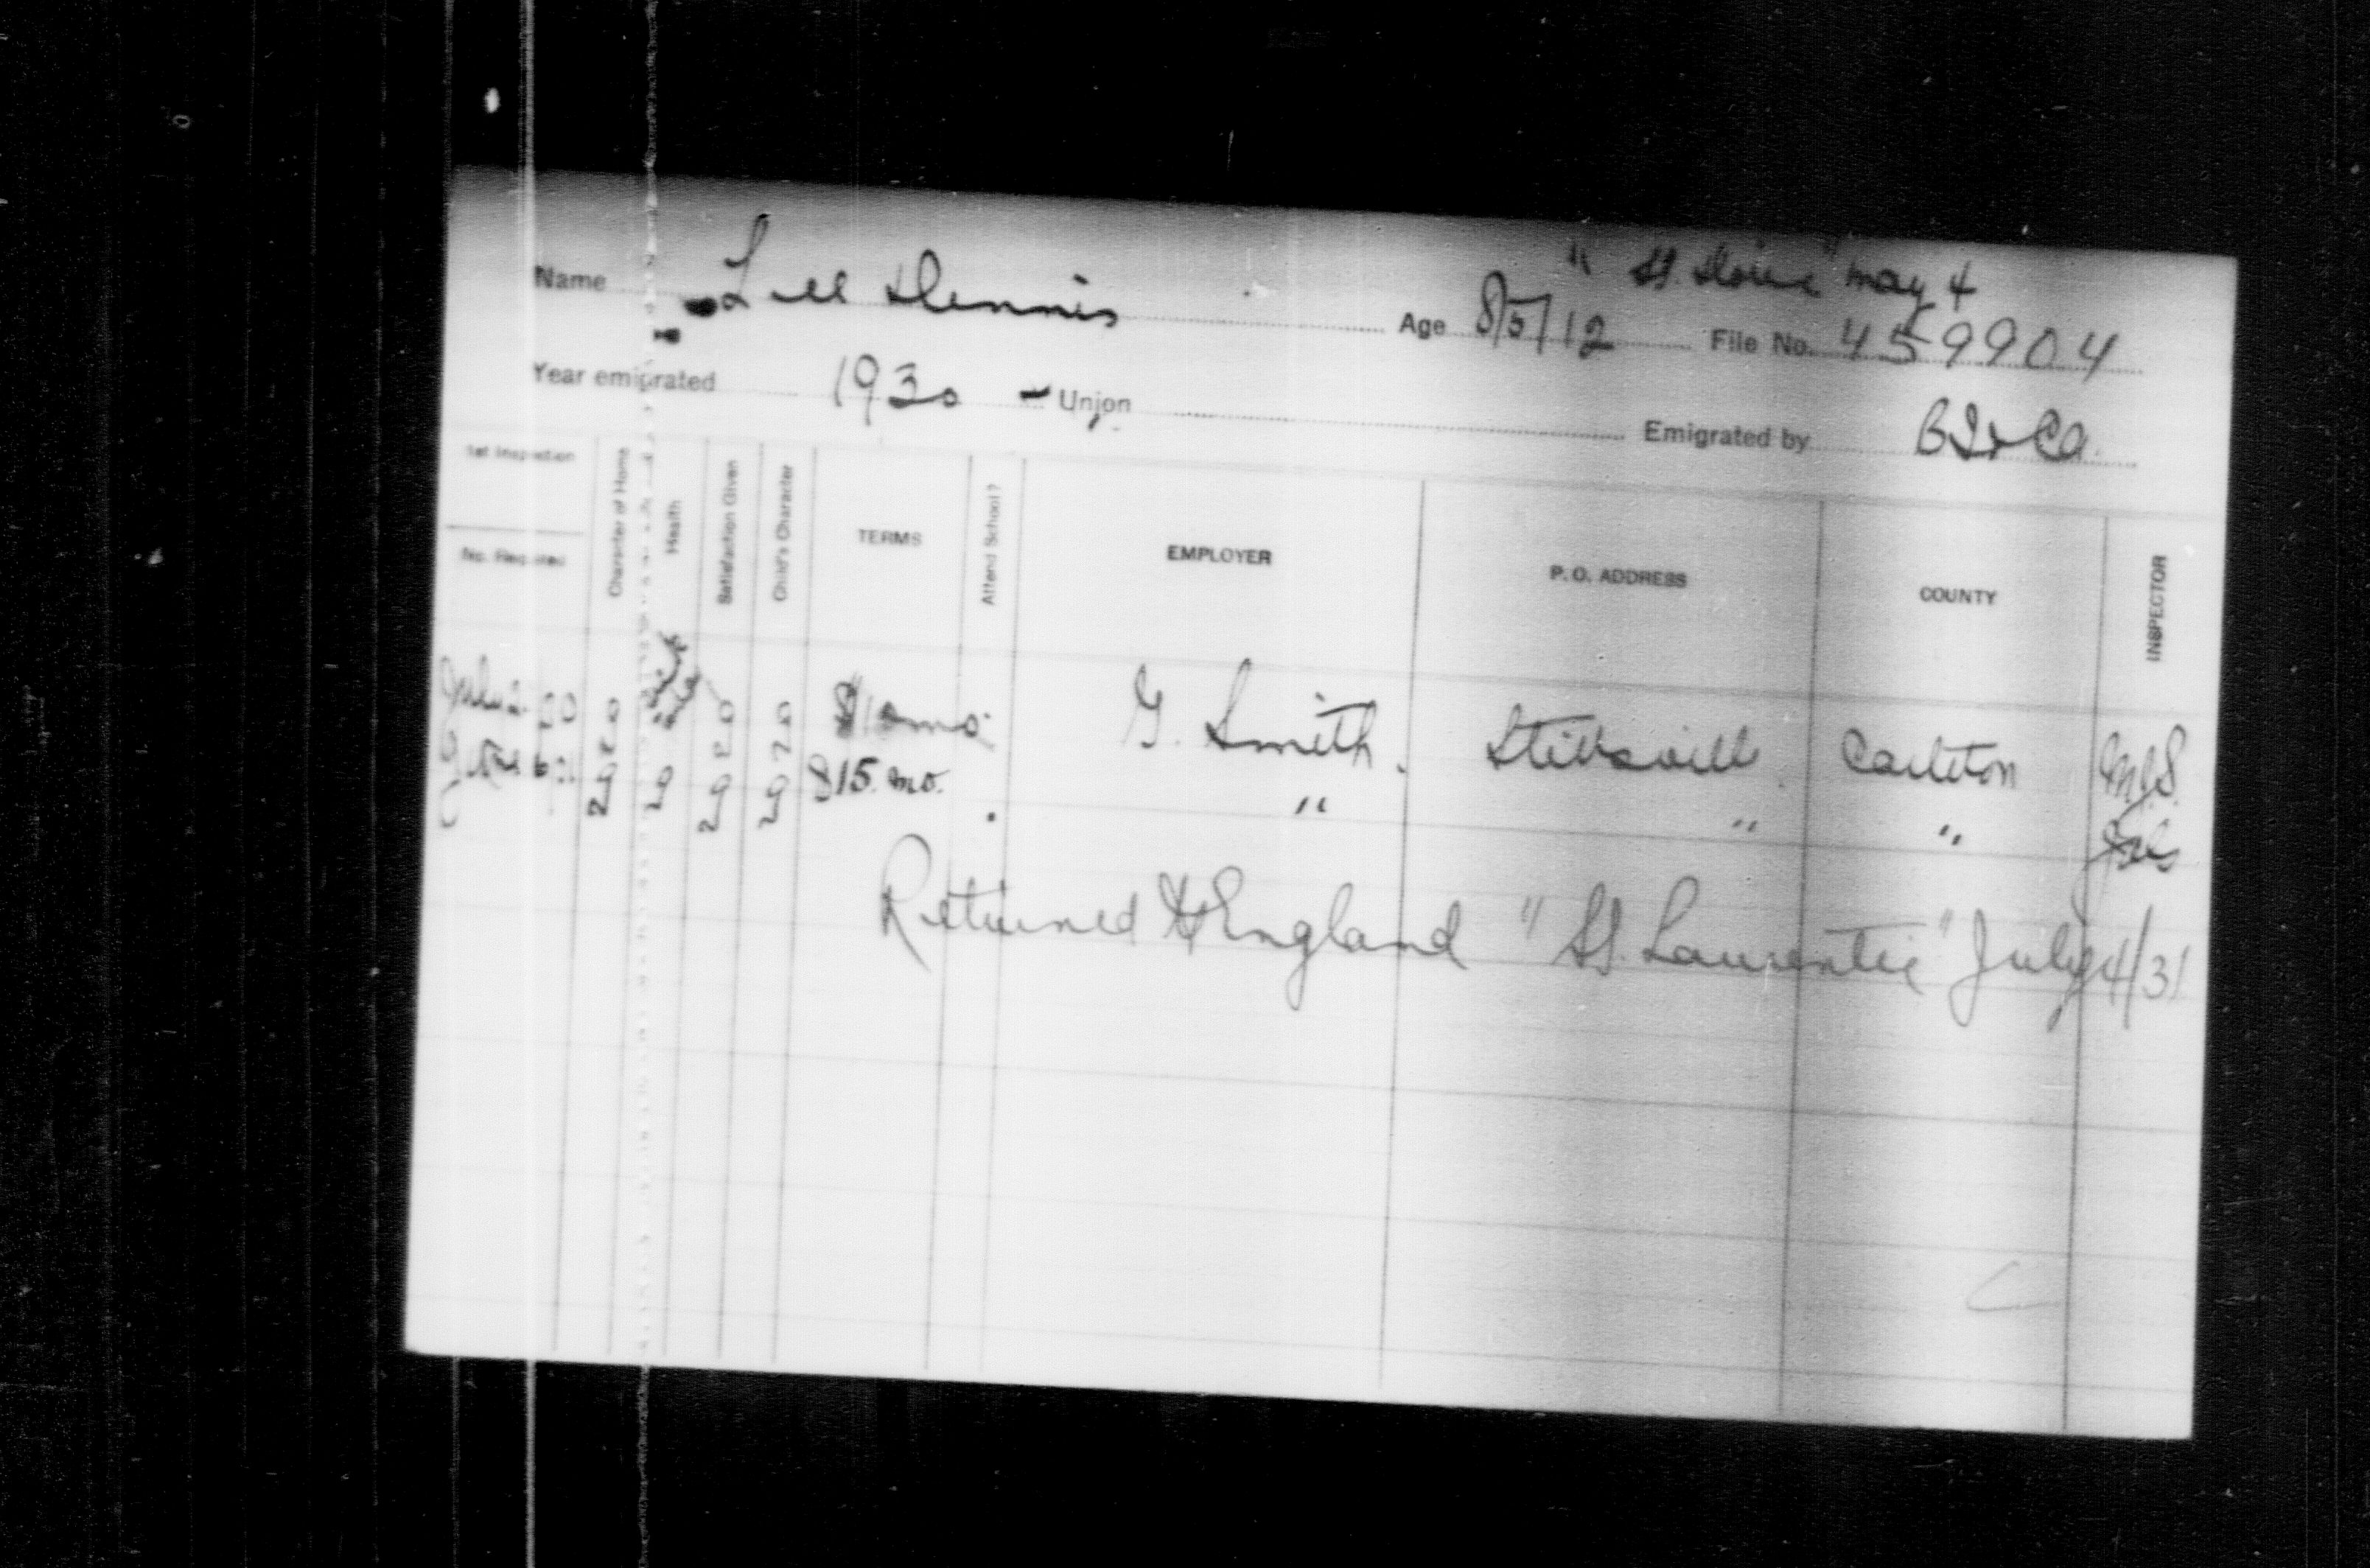 " SS. Doric " May 4
Name Lee Dennis Age 8/5/12 File No. 459904
Year emigrated 1930 - Union Emigrated by
1st Inspection
No. Required Character of Home Health Satisfaction Given Child's Character TERMS Attend School? EMPLOYER P. O. ADDRESS COUNTY INSPECTOR
July 2 30 good good good $10 mo. G. Smith. Stittsville Carleton
good good good $15. mo. " " "
Returned to England " SS. Laurentic " July 4/31